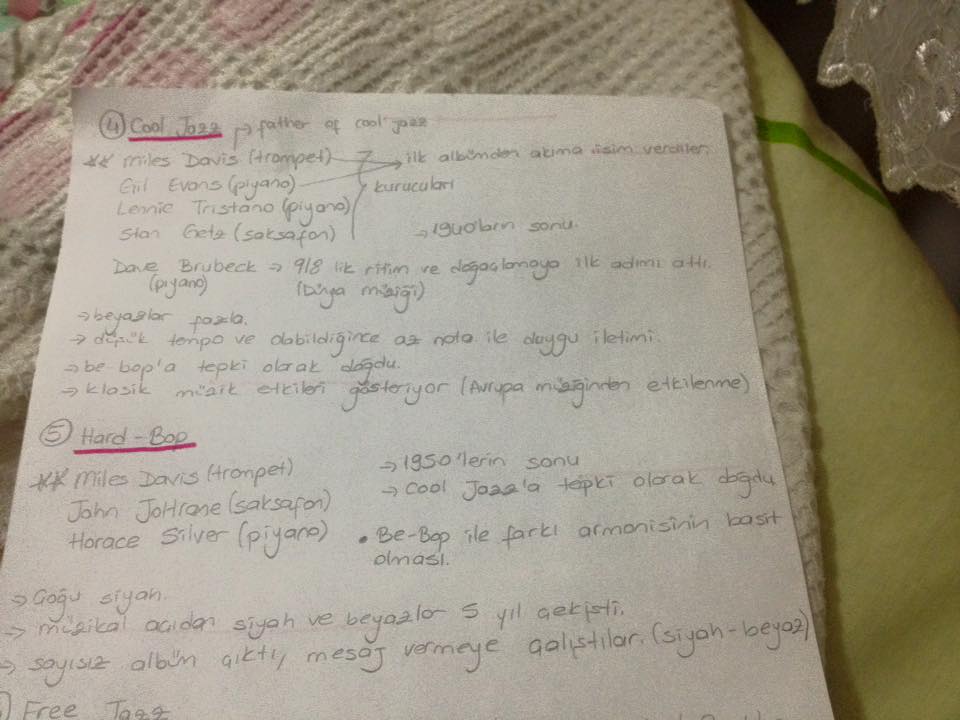 ④ Cool Jazz → father of cool jazz
** Miles Davis (trompet) → ilk albümden akıma isim verdiler.
Gil Evans (piyano) kurucuları
Lennie Tristano (piyano)
Stan Getz (saksafon) → 1940'ların sonu.
Dave Brubeck → 9/8 lik ritim ve doğaçlamaya ilk adımı attı.
(piyano) (Dünya müziği)
→ beyazlar fazla.
→ düşük tempo ve olabildiğince az nota ile duygu iletimi.
→ be-bop'a tepki olarak doğdu.
→ klasik müzik etkileri gösteriyor (Avrupa müziğinden etkilenme)
⑤ Hard-Bop
** Miles Davis (trompet) → 1950'lerin sonu
John JoHrane (saksafon) → Cool Jazz'a tepki olarak doğdu
Horace Silver (piyano) • Be-Bop ile farkı armonisinin basit
olması.
→ Çoğu siyah.
→ müzikal açıdan siyah ve beyazlar 5 yıl çekişti.
→ sayısız albüm çıktı, mesaj vermeye çalıştılar. (siyah-beyaz)
Free Jazz